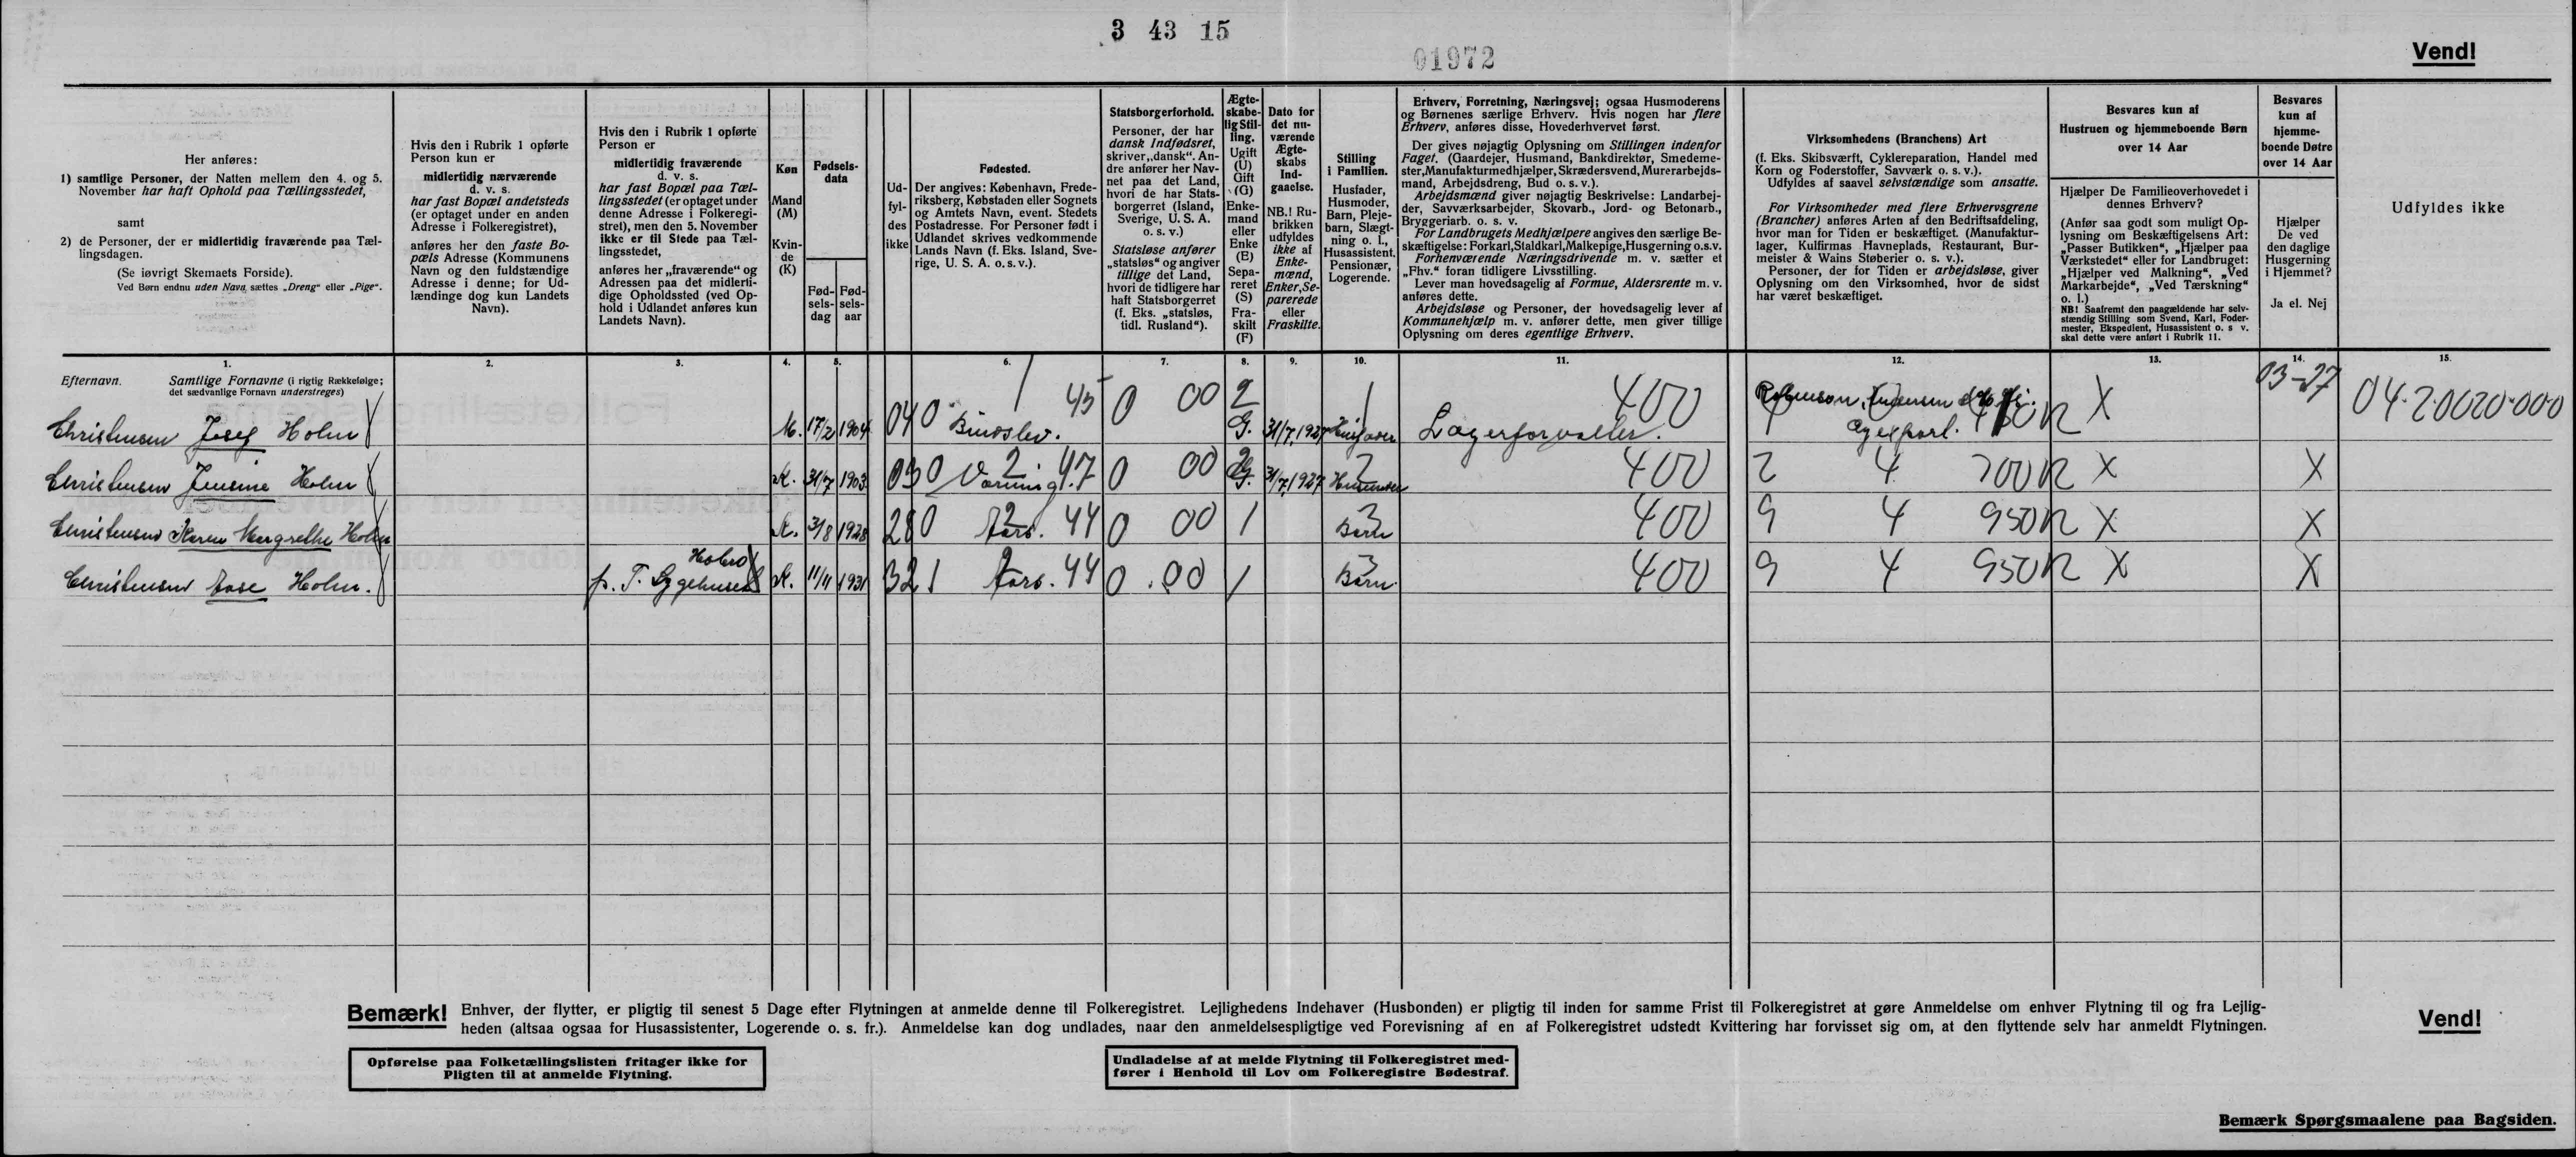 3 43 15
01972
Vend!
Her anføres:
1) samtlige Personer, der Natten mellem den 4. og 5.
November har haft Ophold paa Tællingsstedet,
samt
2) de Personer, der er midlertidig fraværende paa Tæl-
lingsdagen.
(Se iøvrigt Skemaets Forside).
Ved Børn endnu uden Navn sættes „Dreng“ eller „Pige“.
Hvis den i Rubrik 1 opførte
Person kun er
midlertidig nærværende
d. v. s.
har fast Bopæl andetsteds
(er optaget under en anden
Adresse i Folkeregistret),
anføres her den faste Bo-
pæls Adresse (Kommunens
Navn og den fuldstændige
Adresse i denne; for Ud-
lændinge dog kun Landets
Navn).
Hvis den i Rubrik 1 opførte
Person er
midlertidig fraværende
d. v. s.
har fast Bopæl paa Tæl-
lingsstedet (er optaget under
denne Adresse i Folkeregi-
stret), men den 5. November
ikke er til Stede paa Tæl-
lingsstedet,
anføres her „fraværende“ og
Adressen paa det midlerti-
dige Opholdssted (ved Op-
hold i Udlandet anføres kun
Landets Navn).
Køn
Mand
(M)
Kvin-
de
(K)
Fødsels-
data
Fød-
sels-
dag
Fød-
sels-
aar
Ud-
fyl-
des
ikke
Fødested.
Der angives: København, Frede-
riksberg, Købstaden eller Sognets
og Amtets Navn, event. Stedets
Postadresse. For Personer født i
Udlandet skrives vedkommende
Lands Navn (f. Eks. Island, Sve-
rige, U. S. A. o. s. v.).
Statsborgerforhold.
Personer, der har
dansk Indfødsret,
skriver „dansk“. An-
dre anfører her Nav-
net paa det Land,
hvori de har Stats-
borgerret (Island,
Sverige, U. S. A.
o. s. v.)
Statsløse anfører
„statsløs“ og angiver
tillige det Land,
hvori de tidligere har
haft Statsborgerret
(f. Eks. „statsløs,
tidl. Rusland“).
Ægte-
skabe-
lig Stil-
ling.
Ugift
(U)
Gift
(G)
Enke-
mand
eller
Enke
(E)
Sepa-
reret
(S)
Fra-
skilt
(F)
Dato for
det nu-
værende
Ægte-
skabs
Ind-
gaaelse.
NB.! Ru-
brikken
udfyldes
ikke af
Enke-
mænd,
Enker, Se-
parerede
eller
Fraskilte.
Stilling
i Familien.
Husfader,
Husmoder,
Barn, Pleje-
barn, Slægt-
ning o. l.,
Husassistent,
Pensionær,
Logerende.
Erhverv, Forretning, Næringsvej; ogsaa Husmoderens
og Børnenes særlige Erhverv. Hvis nogen har flere
Erhverv, anføres disse, Hovederhvervet først.
Der gives nøjagtig Oplysning om Stillingen indenfor
Faget. (Gaardejer, Husmand, Bankdirektør, Smedeme-
ster, Manufakturmedhjælper, Skrædersvend, Murerarbejds-
mand, Arbejdsdreng, Bud o. s. v.).
Arbejdsmænd giver nøjagtig Beskrivelse: Landarbej-
der, Savværksarbejder, Skovarb., Jord- og Betonarb.,
Bryggeriarb. o. s. v.
For Landbrugets Medhjælpere angives den særlige Be-
skæftigelse: Forkarl, Staldkarl, Malkepige, Husgerning o.s.v.
Forhenværende Næringsdrivende m. v. sætter et
„Fhv.“ foran tidligere Livsstilling.
Lever man hovedsagelig af Formue, Aldersrente m. v.
anføres dette.
Arbejdsløse og Personer, der hovedsagelig lever af
Kommunehjælp m. v. anfører dette, men giver tillige
Oplysning om deres egentlige Erhverv.
Virksomhedens (Branchens) Art
(f. Eks. Skibsværft, Cyklereparation, Handel med
Korn og Foderstoffer, Savværk o. s. v.).
Udfyldes af saavel selvstændige som ansatte.
For Virksomheder med flere Erhvervsgrene
(Brancher) anføres Arten af den Bedriftsafdeling,
hvor man for Tiden er beskæftiget. (Manufaktur-
lager, Kulfirmas Havneplads, Restaurant, Bur-
meister & Wains Støberier o. s. v.).
Personer, der for Tiden er arbejdsløse, giver
Oplysning om den Virksomhed, hvor de sidst
har været beskæftiget.
Besvares kun af
Hustruen og hjemmeboende Børn
over 14 Aar
Hjælper De Familieoverhovedet i
dennes Erhverv?
(Anfør saa godt som muligt Op-
lysning om Beskæftigelsens Art:
„Passer Butikken“, „Hjælper paa
Værkstedet“ eller for Landbruget:
„Hjælper ved Malkning“, „Ved
Markarbejde“, „Ved Tærskning“
o. l.)
NB! Saafremt den paagældende har selv-
stændig Stilling som Svend, Karl, Foder-
mester, Ekspedient, Husassistent o. s v.
skal dette være anført i Rubrik 11.
Besvares
kun af
hjemme-
boende Døtre
over 14 Aar
Hjælper
De ved
den daglige
Husgerning
i Hjemmet?
Ja el. Nej
Udfyldes ikke
1. 2. 3. 4. 5. 6. 7. 8. 9. 10. 11. 12. 13. 14. 15.
Efternavn. Samtlige Fornavne (i rigtig Rækkefølge;
det sædvanlige Fornavn understreges)
1 45 0 00 2 1 400 X 03-27 04·2·0020·000
Christensen Josef Holm M. 17/2 1904 040 Bindslev. G. 31/7, 1927 Husfader Lagerforvalter. Ægexport.
Christensen Jensine Holm K. 31/7 1903 030 Varming. 2 47 0 00 2 G. 31/7, 1927 Husmoder 2 400 2 4 700 R X X
Christensen Karen Margrethe Holm K. 31/8 1928 280 Aars. 2 44 0 00 1 Barn 3 400 9 4 950 R X X
Hobro
Christensen Aase Holm. p. T. Sygehuset K. 11/11 1931 321 Aars. 2 44 0 00 1 Barn 3 400 9 4 950 R X X
Bemærk! Enhver, der flytter, er pligtig til senest 5 Dage efter Flytningen at anmelde denne til Folkeregistret. Lejlighedens Indehaver (Husbonden) er pligtig til inden for samme Frist til Folkeregistret at gøre Anmeldelse om enhver Flytning til og fra Lejlig-
heden (altsaa ogsaa for Husassistenter, Logerende o. s. fr.). Anmeldelse kan dog undlades, naar den anmeldelsespligtige ved Forevisning af en af Folkeregistret udstedt Kvittering har forvisset sig om, at den flyttende selv har anmeldt Flytningen.
Vend!
Opførelse paa Folketællingslisten fritager ikke for
Pligten til at anmelde Flytning.
Undladelse af at melde Flytning til Folkeregistret med-
fører i Henhold til Lov om Folkeregistre Bødestraf.
Bemærk Spørgsmaalene paa Bagsiden.